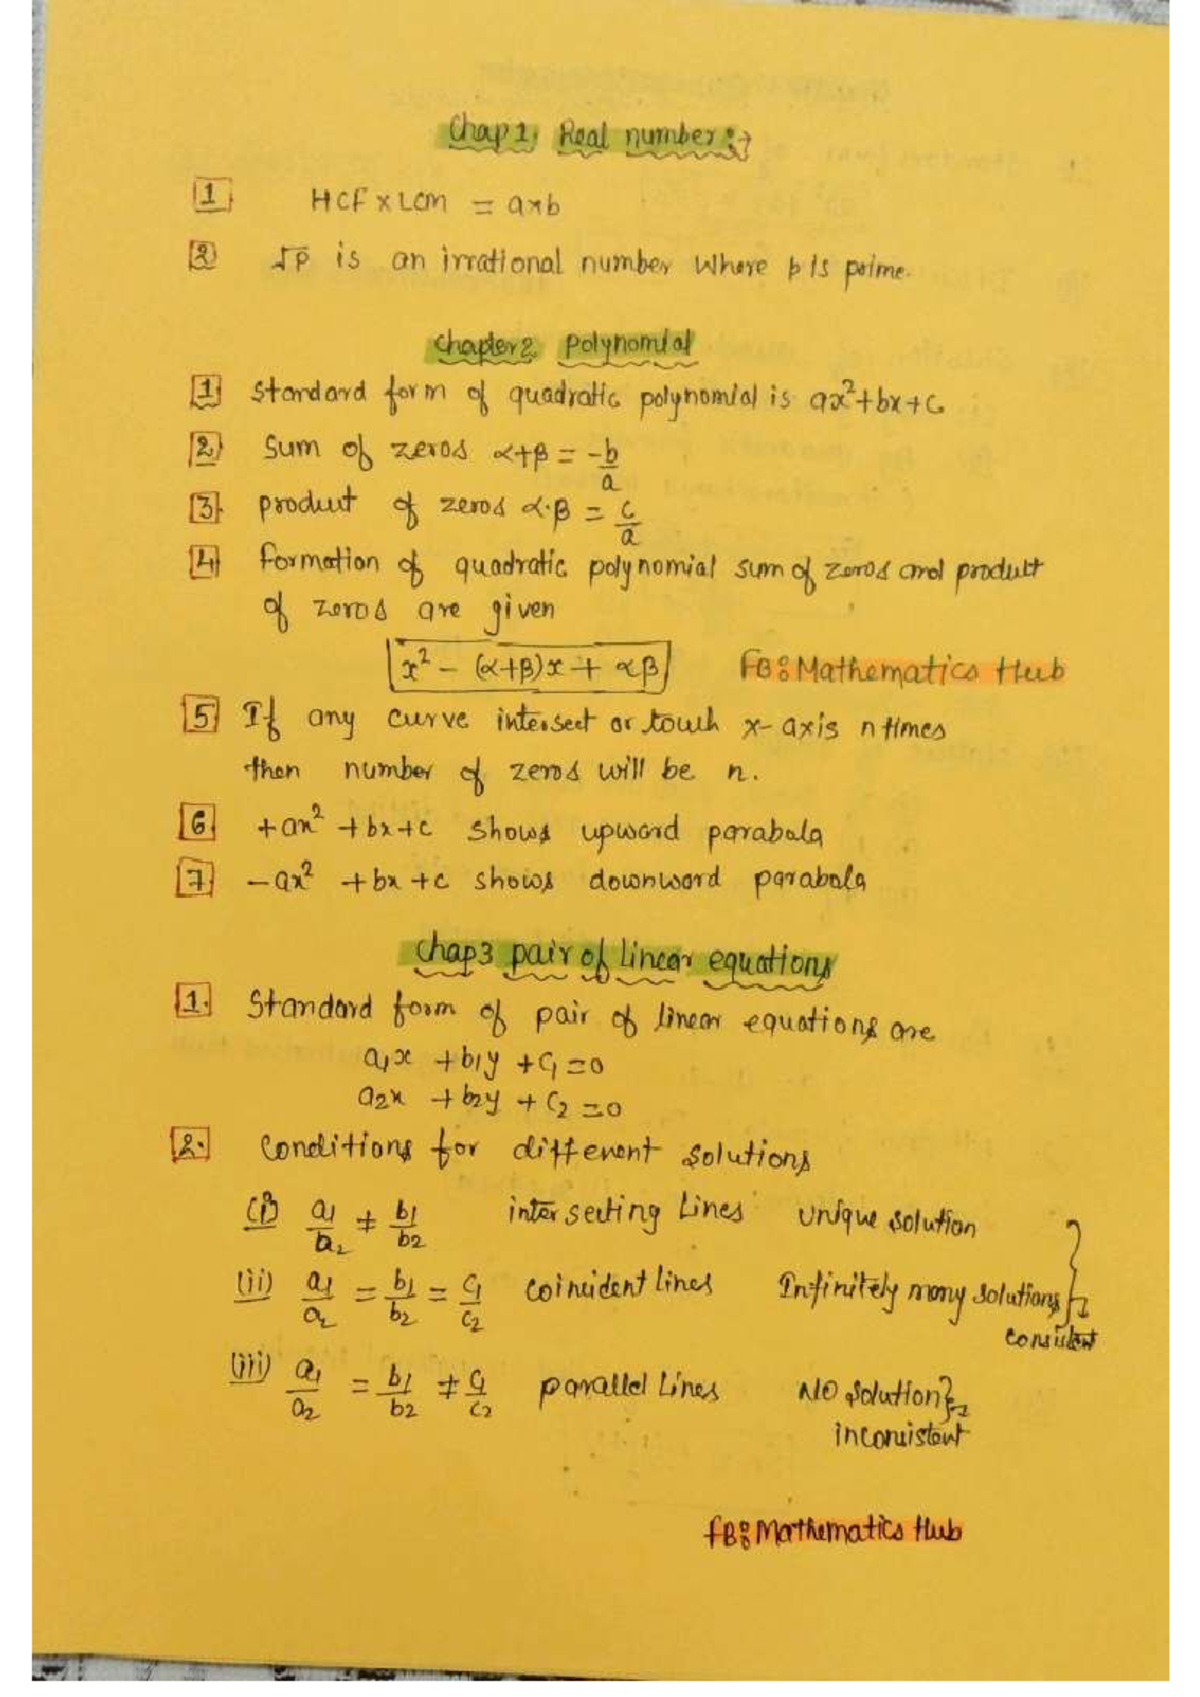 Chap 1. Real number :→
1 HCF x LCM = a×b
2 √p is an irrational number where p is prime.
Chapter 2 Polynomial
1 Standard form of quadratic polynomial is ax²+bx+c
2 Sum of zeros α+β = -b/a
3 product of zeros α·β = c/a
4 Formation of quadratic polynomial sum of zeros and product
of zeros are given
x² - (α+β)x + αβ FB: Mathematics Hub
5 If any curve intersect or touch x-axis n times
then number of zeros will be n.
6 +ax² + bx + c shows upward parabola
7 -ax² + bx + c shows downward parabola
Chap 3 pair of linear equations
1. Standard form of pair of linear equations are
a₁x + b₁y + c₁ = 0
a₂x + b₂y + c₂ = 0
2. Conditions for different solutions
(i) a₁/a₂ ≠ b₁/b₂ intersecting Lines unique solution
(ii) a₁/a₂ = b₁/b₂ = c₁/c₂ coincident lines Infinitely many solutions
consistent
(iii) a₁/a₂ = b₁/b₂ ≠ c₁/c₂ parallel Lines NO solution
inconsistent
FB: Mathematics Hub